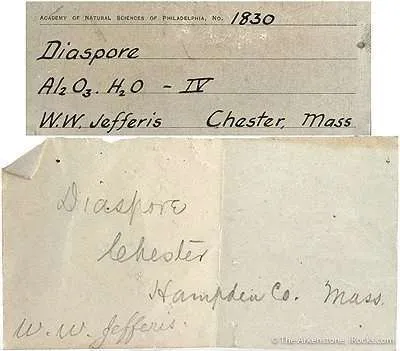 ACADEMY OF NATURAL SCIENCES OF PHILADELPHIA, No. 1830
Diaspore
Al2O3. H2O - IV
W.W. Jefferis Chester, Mass
Diaspore
Chester
Hampden Co. Mass.
W. W. Jefferis.
© The Arkenstone, iRocks.com